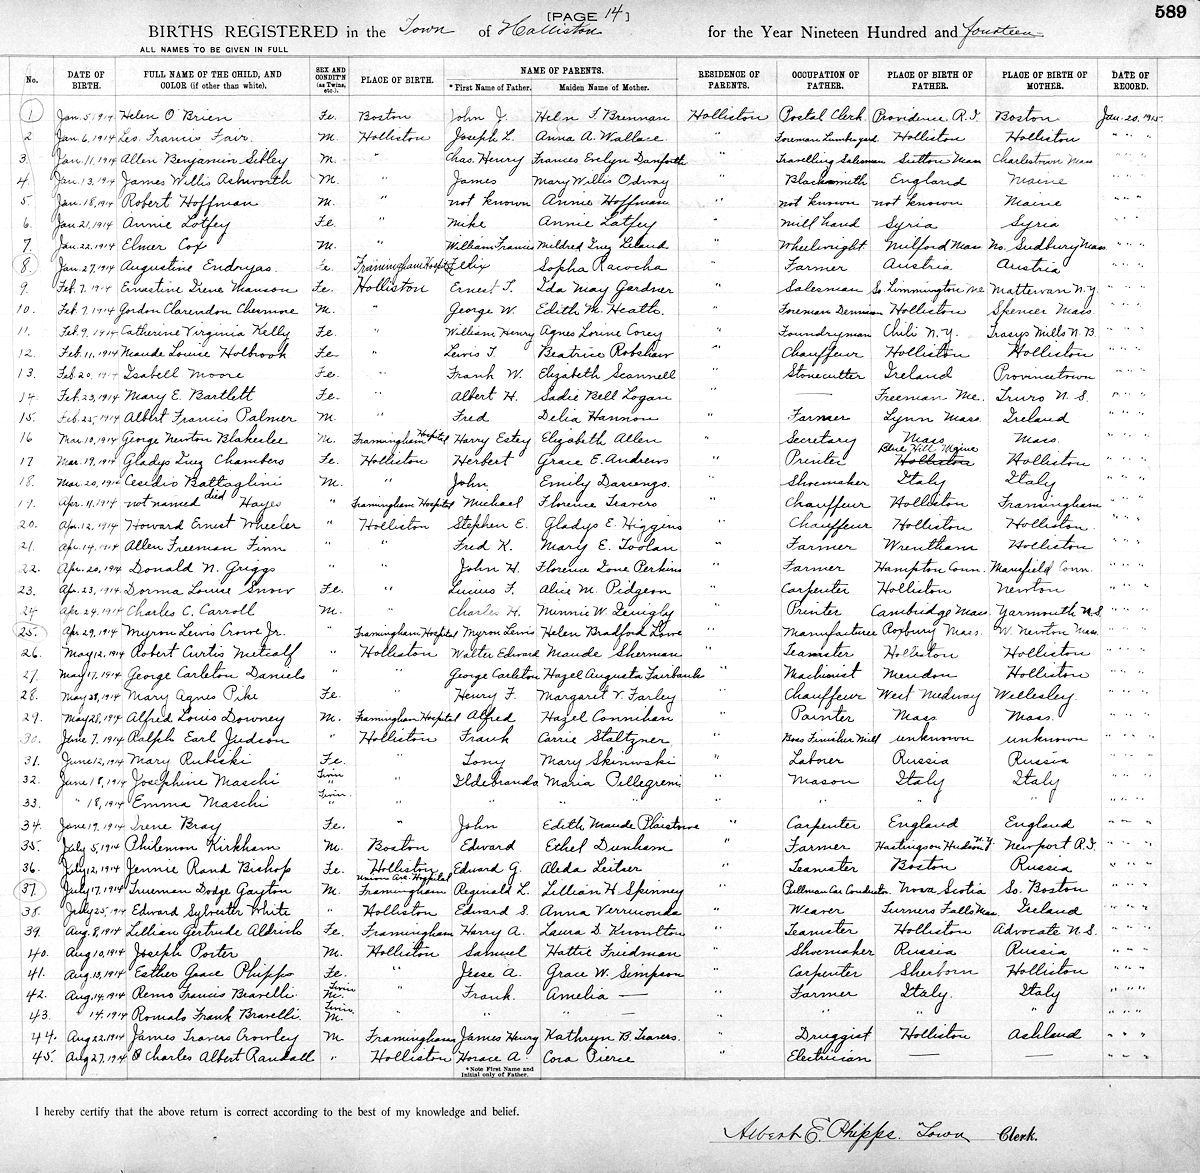 [PAGE 14]
589
BIRTHS REGISTERED in the Town of Holliston for the Year Nineteen Hundred and fourteen
ALL NAMES TO BE GIVEN IN FULL
No. DATE OF BIRTH. FULL NAME OF THE CHILD, AND COLOR (if other than white). SEX AND CONDIT'N (as Twins, etc.). PLACE OF BIRTH. NAME OF PARENTS. *First Name of Father. Maiden Name of Mother. RESIDENCE OF PARENTS. OCCUPATION OF FATHER. PLACE OF BIRTH OF FATHER. PLACE OF BIRTH OF MOTHER. DATE OF RECORD.
1 Jan. 5, 1914 Helen O'Brien Fe. Boston John J. Helen F Brennan Holliston Postal Clerk Providence R.I Boston Jan. 20. 1915
2 Jan. 6, 1914 Leo Francis Fair M. Holliston Joseph L. Anna A. Wallace " Foreman Lumberyard Holliston Holliston " " "
3. Jan. 11, 1914 Allen Benjamin Sibley M. " Chas. Henry Frances Evelyn Danforth " Travelling Salesman Sutton Mass Charlestown Mass " " "
4. Jan. 13, 1914 James Willis Ashworth M. " James Mary Willis Odway " Blacksmith England Maine " " "
5. Jan. 18, 1914 Robert Hoffman M. " not known Annie Hoffman " not known not known Maine " " "
6. Jan 21, 1914 Annie Lotfey Fe. " Mike Annie Latfey " Mill hand Syria Syria " " "
7. Jan. 22, 1914 Elmer Cox M. " William Francis Mildred Inez Leland " Wheelwright Milford Mass No. Sudbury Mass " " "
8. Jan. 27, 1914 Augustine Endryas. Fe. Framingham Hospital Felix Sopha Racocha " Farmer Austria Austria " " "
9. Feb. 7, 1914 Ernestine Irene Manson Fe. Holliston Ernest T. Ida May Gardner " Salesman So Limmington Me Mattewan N.Y. " " "
10. Feb 7, 1914 Gordon Clarendon Chesmore M. " George W. Edith M. Heath. " Foreman Dennison Holliston Spencer Mass. " " "
11. Feb. 9, 1914 Catherine Virginia Kelly Fe. " William Henry Agnes Louise Corey " Foundryman Chili N.Y. Tracys Mills N.B. " " "
12. Feb. 11, 1914 Maude Louise Holbrook Fe. " Lewis T. Beatrice Robshaw " Chauffeur Holliston Holliston " " "
13. Feb 20, 1914 Isabell Moore Fe. " Frank W. Elizabeth Scannell " Stonecutter Ireland Provincetown " " "
14. Feb. 23, 1914 Mary E. Bartlett Fe. " Albert H. Sadie Bell Logan " — Freeman Me. Truro N.S. " " "
15. Feb. 25, 1914 Albert Francis Palmer M. " Fred Delia Hannon " Farmer Lynn Mass. Ireland " " "
16 Mar 10, 1914 George Newton Blakeslee M. Framingham Hospital Harry Estey Elizabeth Allen " Secretary Mass Mass. " " "
17 Mar. 19, 1914 Gladys Inez Chambers Fe. Holliston Herbert Grace E. Andrews " Printer Blue Hill Maine Holliston Holliston " " "
18. Mar. 20, 1914 Cecidio Battaglini M. " John Emily Dascengo. " Shoemaker Italy Italy " " "
19. Apr. 11, 1914 not named died Hayes " Framingham Hospital Michael Florence Teavers " Chauffeur Holliston Framingham " " "
20. Apr. 12, 1914 Howard Ernest Wheeler " Holliston Stephen E. Gladys E. Higgins " Chauffeur Holliston Holliston. " " "
21. Apr. 14, 1914 Allen Freeman Finn " " Fred K. Mary E. Toolan " Farmer Wrentham Holliston " " "
22. Apr. 20, 1914 Donald N. Griggs " " John H. Florence Ione Perkins " Farmer Hampton Conn. Mansfield Conn. " " "
23. Apr. 23, 1914 Dorma Louise Snow Fe. " Lucius F. Alice M. Pidgeon " Carpenter Holliston Newton " " "
24 Apr. 24, 1914 Charles C. Carroll M. " Charles H. Minnie W. " Printer Cambridge Mass. Yarmouth N.S. " " "
25. Apr. 29, 1914 Myron Lewis Crowe Jr. " Framingham Hospital Myron Lewis Helen Bradford Lowe " Manufacturer Roxbury Mass. W. Newton Mass. " " "
26. May 12, 1914 Robert Curtis Metcalf " Holliston Walter Edward Maude Sherman " Teamster Holliston Holliston " " "
27. May 17, 1914 George Carleton Daniels " " George Carleton Hazel Augusta Fairbanks " Machinist Mendon Holliston " " "
28. May 28, 1914 Mary Agnes Pike Fe. " Henry F. Margaret V. Farley " Chauffeur West Medway Wellesley. " " "
29. May 28, 1914 Alfred Louis Downey M. Framingham Hospital Alfred Hazel Connihan " Painter Mass Mass. " " "
30. June 7, 1914 Ralph Earl Judson " Holliston Frank Carrie Staltzner " Boss Finisher Mill unknown unknown " " "
31. June 12, 1914 Mary Rubiski Fe. " Tony Mary Skinwski " Laborer Russia Russia " " "
32. June 18, 1914 Josephine Maschi Twin " " Ildebranda Maria Pellegrem " Mason Italy Italy " " "
33. " 18, 1914 Emma Maschi Twin. " " " " " " " " " " "
34. June 19, 1914 Irene Bray Fe. " John Edith Maude Plaistowe " Carpenter England England " " "
35. July 5, 1914 Philemon Kirkham M. Boston Edward Ethel Dunham " Farmer Hastings on Hudson N.Y Newport R.I. " " "
36. July 12, 1914 Jennie Rand Bishop Fe. Holliston Edward G. Aleda Leitser " Teamster Boston Russia " " "
37. July 17, 1914 Trueman Dodge Gayton M. Union Ave. Hospital Framingham Reginald L. Lillian H. Spinney " Pullman Car Conductor Nova Scotia So. Boston " " "
38. July 25, 1914 Edward Sylvester White " Holliston Edward S. Anna Verruconda " Weaver Turners Falls Mass. Ireland " " "
39. Aug. 8, 1914 Lillian Gertrude Aldrich Fe. Framingham Harry A. Laura D. Knowlton " Teamster Holliston Advocate N.S. " " "
40. Aug 10, 1914 Joseph Porter M. Holliston Samuel Hattie Friedman " Shoemaker Russia Russia " " "
41. Aug. 13, 1914 Esther Grace Phipps Fe. " Jesse A. Grace W. Simpson " Carpenter Sherborn Holliston " " "
42. Aug. 14, 1914 Remo Francis Bravelli Twin M. " Frank. Amelia — " Farmer Italy. Italy " " "
43. " 14, 1914 Romals Frank Bravelli Twin. M. " " " — " " " " " " "
44. Aug 22, 1914 James Travers Crowley M Framingham James Henry Kathryn B. Travers. " Druggist Holliston Ashland " " "
45. Aug 27, 1914 Charles Albert Randall " Holliston Horace A. Cora Pierce " Electrician — — " " "
*Note First Name and Initial only of Father.
I hereby certify that the above return is correct according to the best of my knowledge and belief.
Albert E. Phipps. Town Clerk.